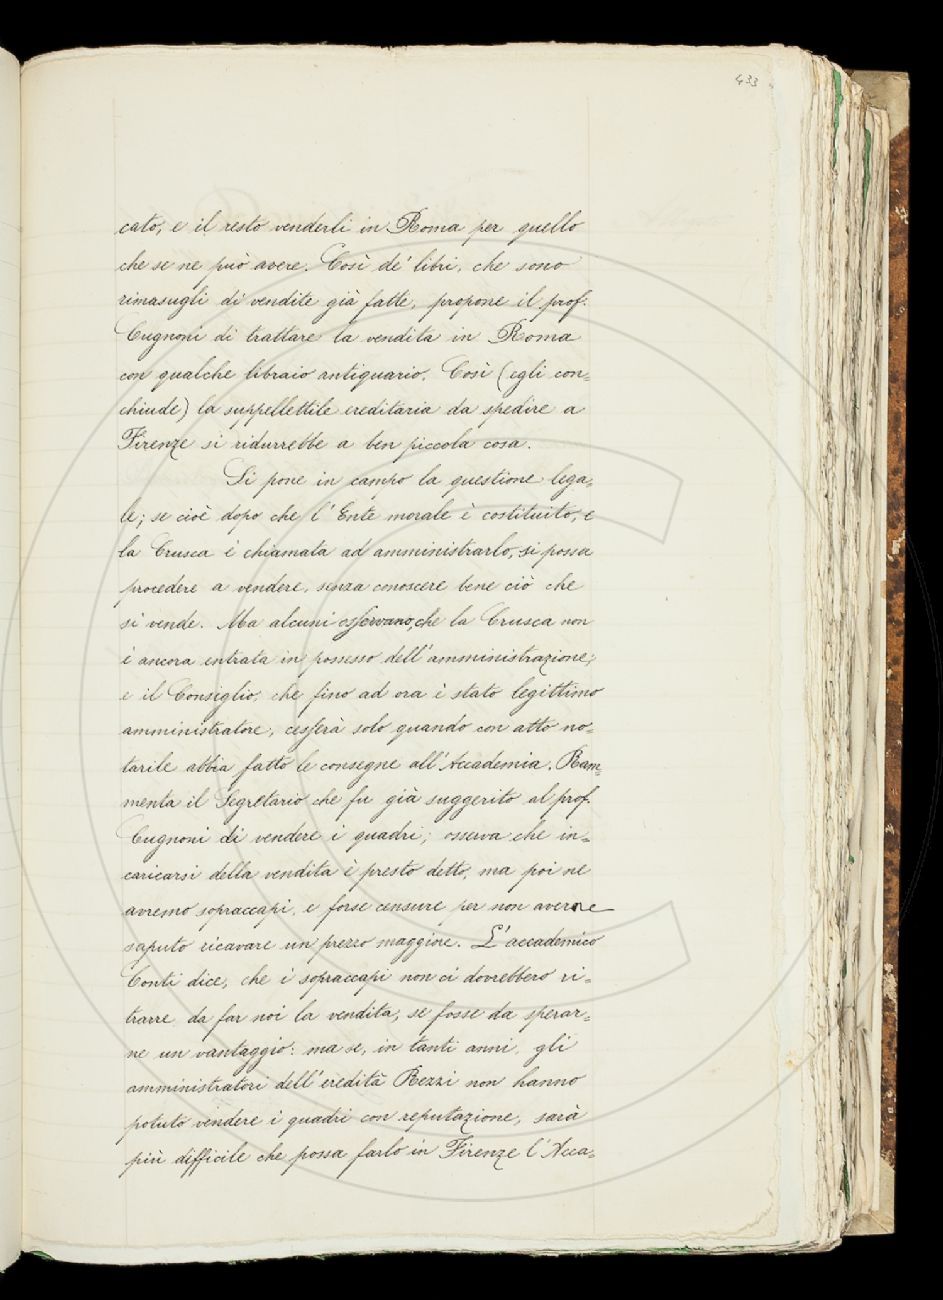 433
cato, e il resto venderli in Roma per quello
che se ne può avere. Così de' libri, che sono
rimasugli di vendite già fatte, propone il prof.
Cugnoni di trattare la vendita in Roma
con qualche libraio antiquario. Così (egli con=
chiude) la suppellettile ereditaria da spedire a
Firenze si ridurrebbe a ben piccola cosa.
Si pone in campo la questione lega=
le; se cioè dopo che l'Ente morale è costituito, e
la Crusca è chiamata ad amministrarlo, si possa
procedere a vendere, senza conoscere bene ciò che
si vende. Ma alcuni osservano, che la Crusca non
è ancora entrata in possesso dell'amministrazione;
e il Consiglio, che fino ad ora è stato legittimo
amministratore, cesserà solo quando con atto no=
tarile abbia fatto le consegne all'Accademia. Ram=
menta il Segretario che fu già suggerito al prof.
Cugnoni di vendere i quadri; osserva che in=
caricarsi della vendita è presto detto, ma poi ne
avremo sopraccapi, e forse censure per non averne
saputo ricavare un prezzo maggiore. L'accademico
Conti dice, che i sopraccapi non ci dovrebbero ri=
trarre da far noi la vendita, se fosse da sperar=
ne un vantaggio: ma se, in tanti anni, gli
amministratori dell'eredità Rezzi non hanno
potuto vendere i quadri con reputazione, sarà
più difficile che possa farlo in Firenze l'Acca=